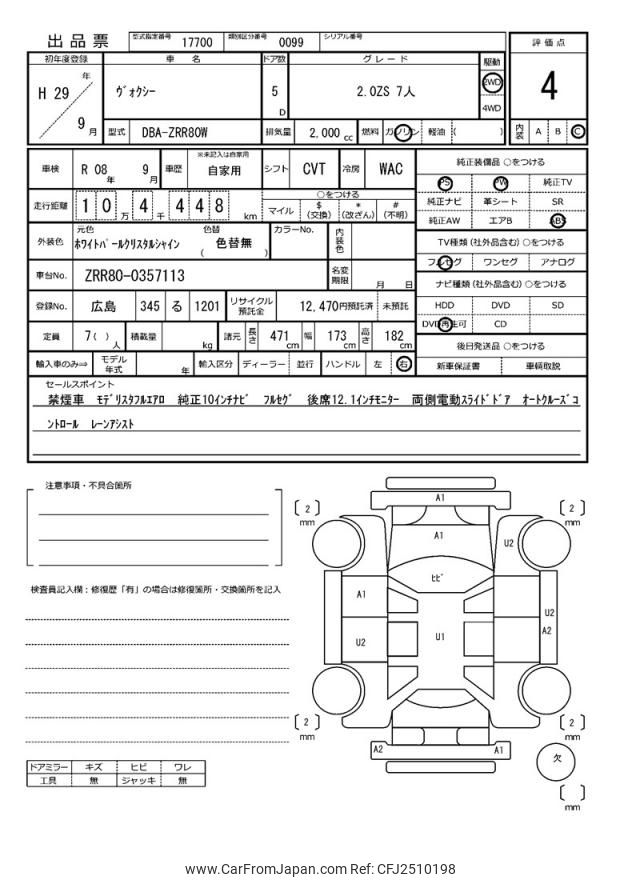 出品票
型式指定番号 17700 類別区分番号 0099 シリアル番号
評価点
4
内装 A B C
初年度登録 車名 ドア数 グレード 駆動
H 29 年 9 月
ヴォクシー 5 D 2.0ZS 7人 2WD
4WD
型式 DBA-ZRR80W 排気量 2,000 cc 燃料 ガソリン 軽油 ( )
車検 R 08 年 9 月 車歴 ※未記入は自家用 自家用 シフト CVT 冷房 WAC
走行距離 1 0 万 4 千 4 4 8 km
○をつける
マイル $(交換) *(改ざん) #(不明)
外装色 元色 ホワイトパールクリスタルシャイン 色替 ( 色替無 ) カラーNo. 内装色
車台No. ZRR80-0357113 名変期限 月 日
登録No. 広島 345 る 1201 リサイクル預託金 12,470円預託済 未預託
定員 7 ( ) 人 積載量 kg 諸元 長さ 471 cm 幅 173 cm 高さ 182 cm
輸入車のみ⇒ モデル年式 年 輸入区分 ディーラー 並行 ハンドル 左 右
純正装備品 ○をつける
PS PW 純正TV
純正ナビ 革シート SR
純正AW エアB ABS
TV種類 (社外品含む) ○をつける
フルセグ ワンセグ アナログ
ナビ種類 (社外品含む) ○をつける
HDD DVD SD
DVD再生可 CD
後日発送品 ○をつける
新車保証書 車輌取説
セールスポイント
禁煙車 モデリスタフルエアロ 純正10インチナビ フルセグ 後席12.1インチモニター 両側電動スライドドア オートクルーズコ
ントロール レーンアシスト
注意事項・不具合箇所
検査員記入欄：修復歴「有」の場合は修復箇所・交換箇所を記入
ドアミラー キズ ヒビ ワレ
工具 無 ジャッキ 無
A1
[ 2 ] mm
[ 2 ] mm
A1
U2
ヒビ
A1
U2
U1
U2
A2
[ 2 ] mm
[ 2 ] mm
A2 A1
欠
[ ] mm
www.CarFromJapan.com Ref: CFJ2510198